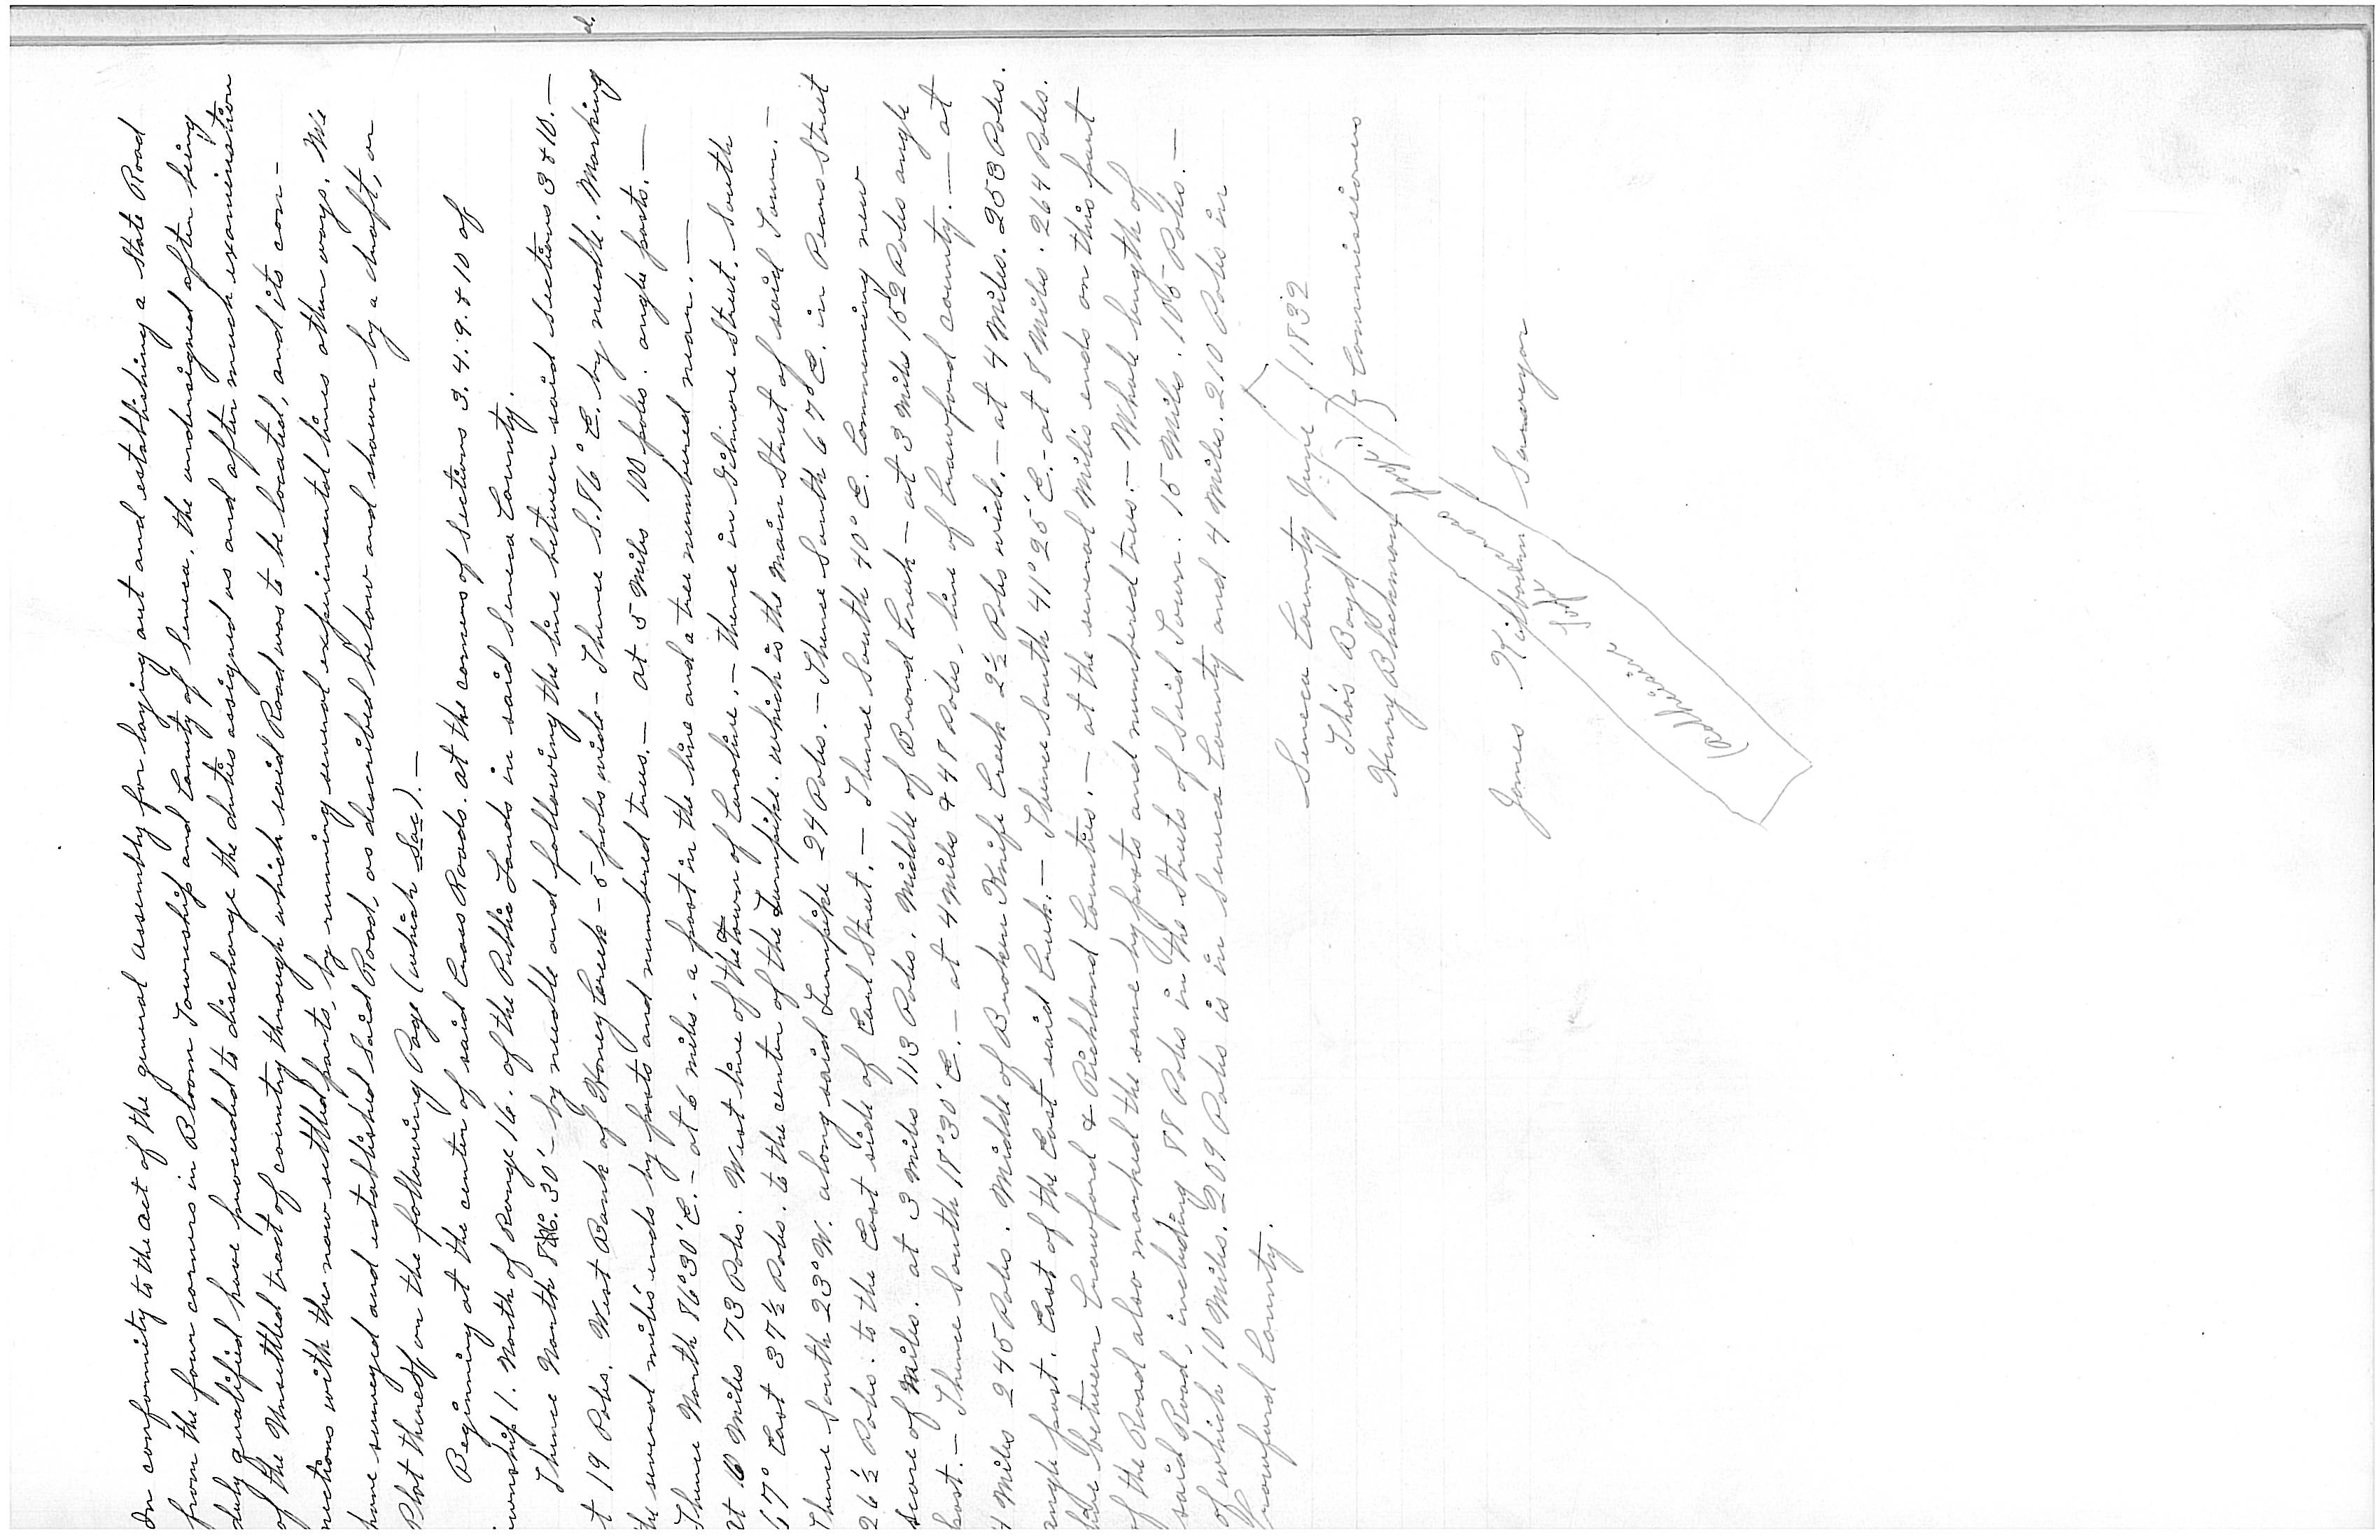 In conformity to the act of the general assembly for laying out and establishing a State Road
from the four corners in Bloom Township and County of Seneca, the undersigned after being
duly qualified have proceeded to discharge the duties assigned us and after much examination
of the Unsettled tract of country through which said Road was to be located, and its con-
nections with the now settled parts, by running several experimental lines other ways. We
have surveyed and established said Road, as described below and shown by a draft, or
Plot thereof, on the following Page (which See). —
Beginning at the center of said Cross Roads. at the corners of Sections 3. 4. 9. & 10 of
ownship 1. North of Range 16. of the Public Lands in said Seneca County.
Thence North 86°. 30' - by needle and following the line between said sections 3 & 10. —
t 19 Poles. West Bank of Honey Creek - 5 poles wide - Thence S. 86° E. by needle. Marking
the several miles ends by posts and numbered trees. - at 5 Miles 100 poles. angle posts. —
Thence North 86°30' E. - at 6 miles. a post in the line and a tree numbered near. —
at 6 Miles 73 Poles. West line of the town of Caroline. - thence in Gilmore Street. South
67° East 37½ Poles. to the center of the Turnpike. which is the Main Street of said Town. —
Thence South 23° W. along said Turnpike 24 Poles. - Thence South 67° E. in Pearl Street
26½ Poles. to the East side of Earl Street. — Thence South 40° E. Commencing new
score of Miles. at 3 Miles 113 Poles. Middle of Brond Creek - at 3 Mile 152 Poles angle
post. - Thence South 18°30' E. - at 4 Miles & 48 Poles. line of Crawford County. — at
4 Miles 245 Poles. Middle of Broken Knife Creek 2½ Poles wide. - at 4 Miles. 253 Poles.
angle post. East of the East said Creek. - Thence South 41°25' E. - at 8 Miles. 264 Poles.
line between Crawford & Richland Counties. - at the several Miles ends on this part
of the Road also marked the same by posts and numbered trees. - Whole length of
said Road, including 88 Poles in the Streets of Said Town. 15 Miles. 105 Poles. —
of which 10 Miles. 209 Poles is in Seneca County and 4 Miles. 210 Poles in
Crawford County.
Seneca County June 1832
Tho's Boyd
Henry Blackman
Commissioners
James Kilbourn Surveyor